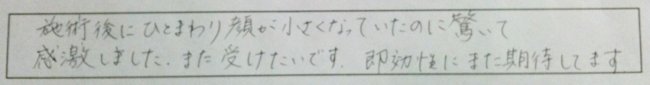 施術後にひとまわり顔が小さくなっていたのに驚いて
感激しました. また受けたいです. 即効性にまた期待してます